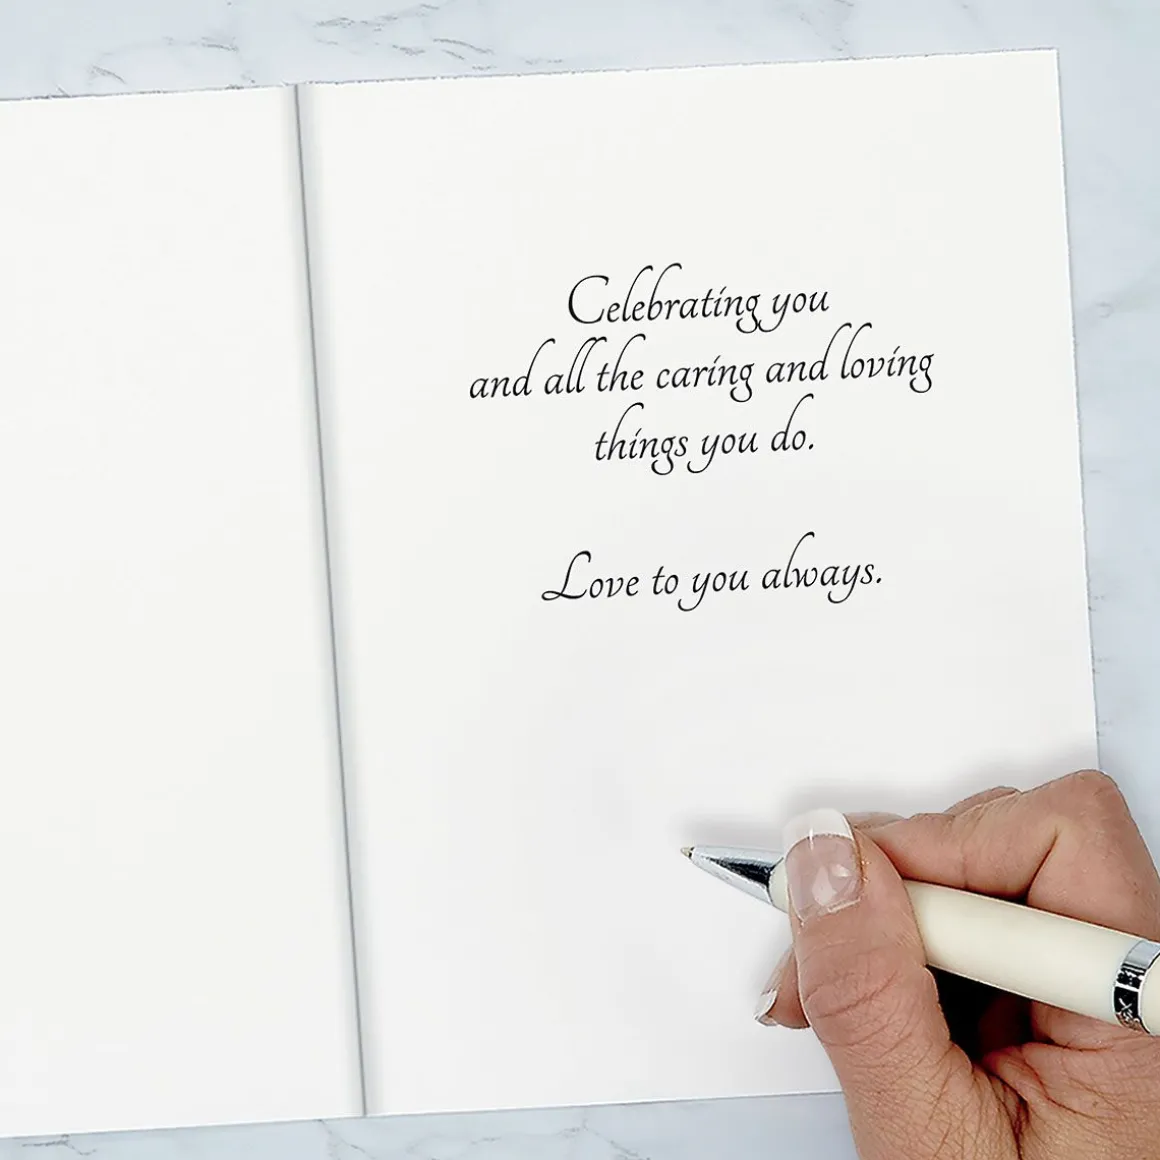 Celebrating you
and all the caring and loving
things you do.
Love to you always.